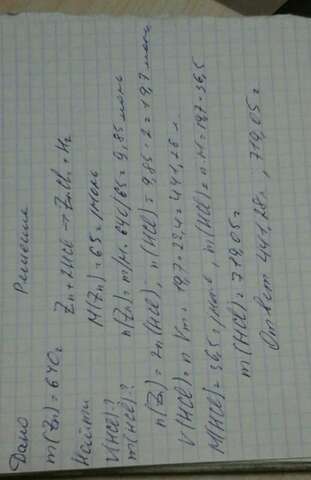 Дано Решение
m(Zn)=640г Zn+2HCl→ZnCl₂+H₂
Найти M(Zn)=65г/моль
V(HCl)? n(Zn)=m/M=640/65=9,85моль
m(HCl)?
n(Zn)=2n(HCl), n(HCl)=9,85·2=19,7моль
V(HCl)=n·Vm=19,7·22,4=441,28л
M(HCl)=36,5г/моль, m(HCl)=n·M=19,7·36,5
m(HCl)=719,05г
Ответ 441,28л, 719,05г